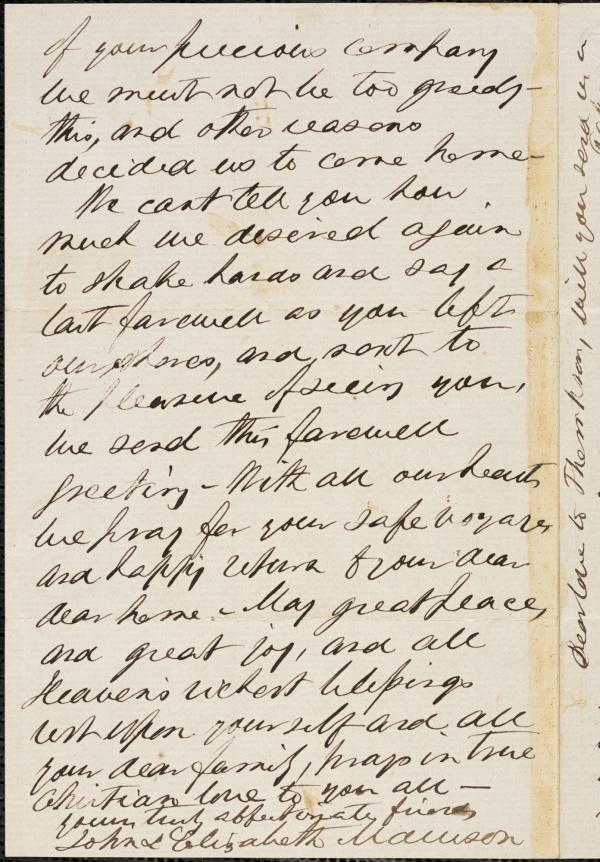 of your precious company
we must not be too greedy –
this, and other reasons
decided us to come home –
We cant tell you how
much we desired again
to shake hands and say a
last farewell as you left
our shores, and next to
the pleasure of seeing you,
we send this farewell
greeting – With all our hearts
we pray for your safe voyage,
and happy return to your dear
dear home – May great peace,
and great joy, and all
Heaven's richest blessings
rest upon yourself and all
your dear family, prays in true
Christian love to you all –
yours truly & affectionate friends
John & Elizabeth
Dear love to Thompson, will you send us a